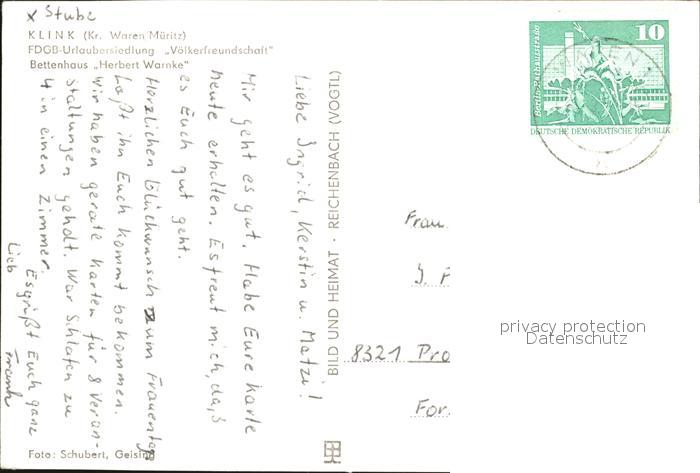 x Stube
KLINK (Kr. Waren/Müritz)
FDGB-Urlaubersiedlung „Völkerfreundschaft"
Bettenhaus „Herbert Warnke"
Liebe Ingrid, Kerstin u. Matzi!
Mir geht es gut. Habe Eure Karte
heute erhalten. Es freut mich, daß
es Euch gut geht.
Herzlichen Glückwunsch zum Frauentag
Laßt ihn Euch kommt bekommen.
Wir haben gerate Karten für 8 Veran-
staltungen geholt. War Schlafen zu
4 in einen Zimmer.
Es grüßt Euch ganz
Lieb
Frank
Foto: Schubert, Geising
BILD UND HEIMAT · REICHENBACH (VOGTL)
Berlin-Rathausstraße
10
DEUTSCHE DEMOKRATISCHE REPUBLIK
Frau
8321 Pro
For
privacy protection
Datenschutz